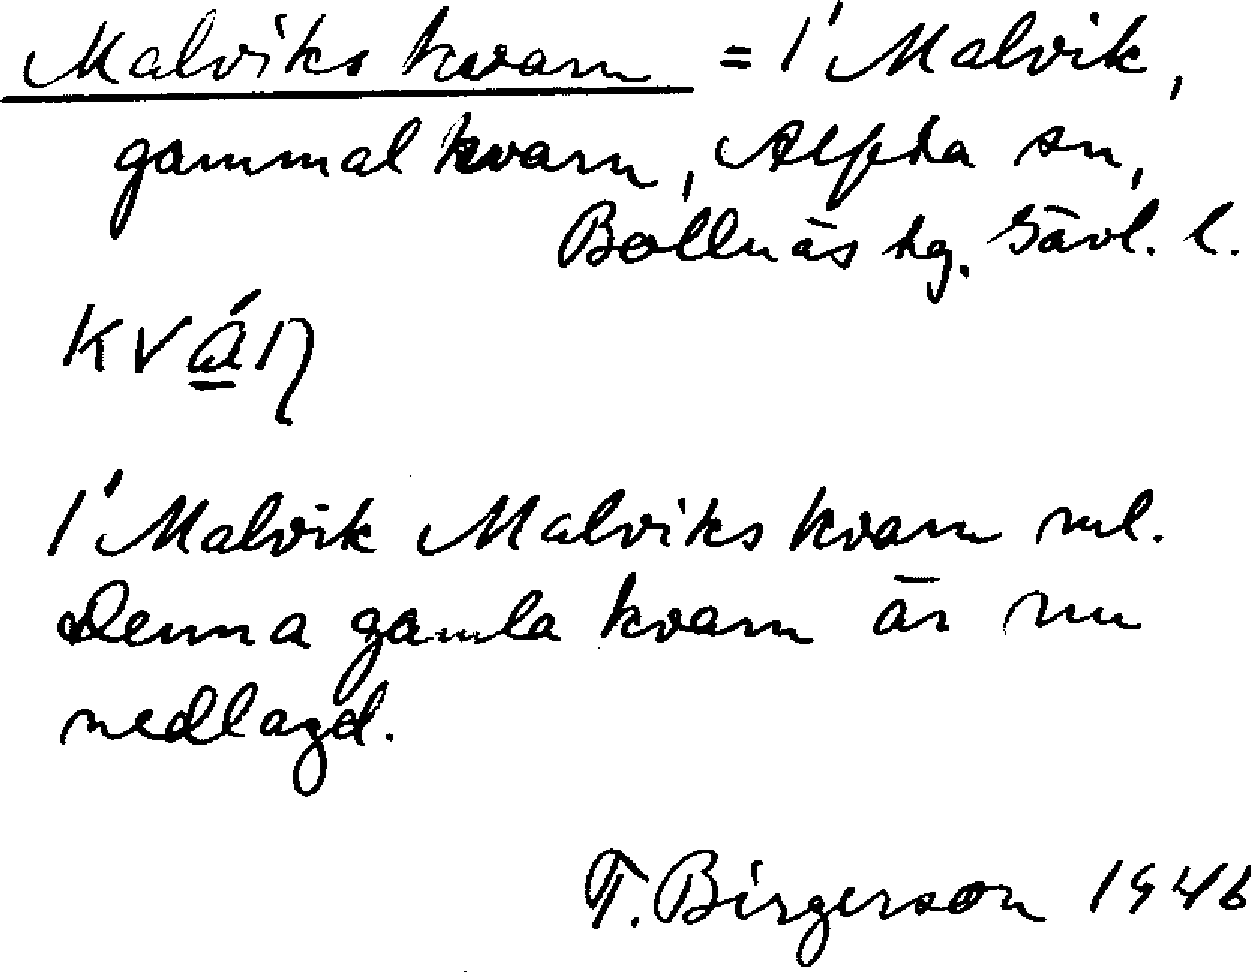 Malviks kvarn = I' Malvik,
gammal kvarn, Alfta sn,
Bollnäs tg. Gävl. l.
kváṉ
I' Malvik Malviks kvarn ml.
Denna gamla kvarn är nu
nedlagd.
T. Birgerson 1946